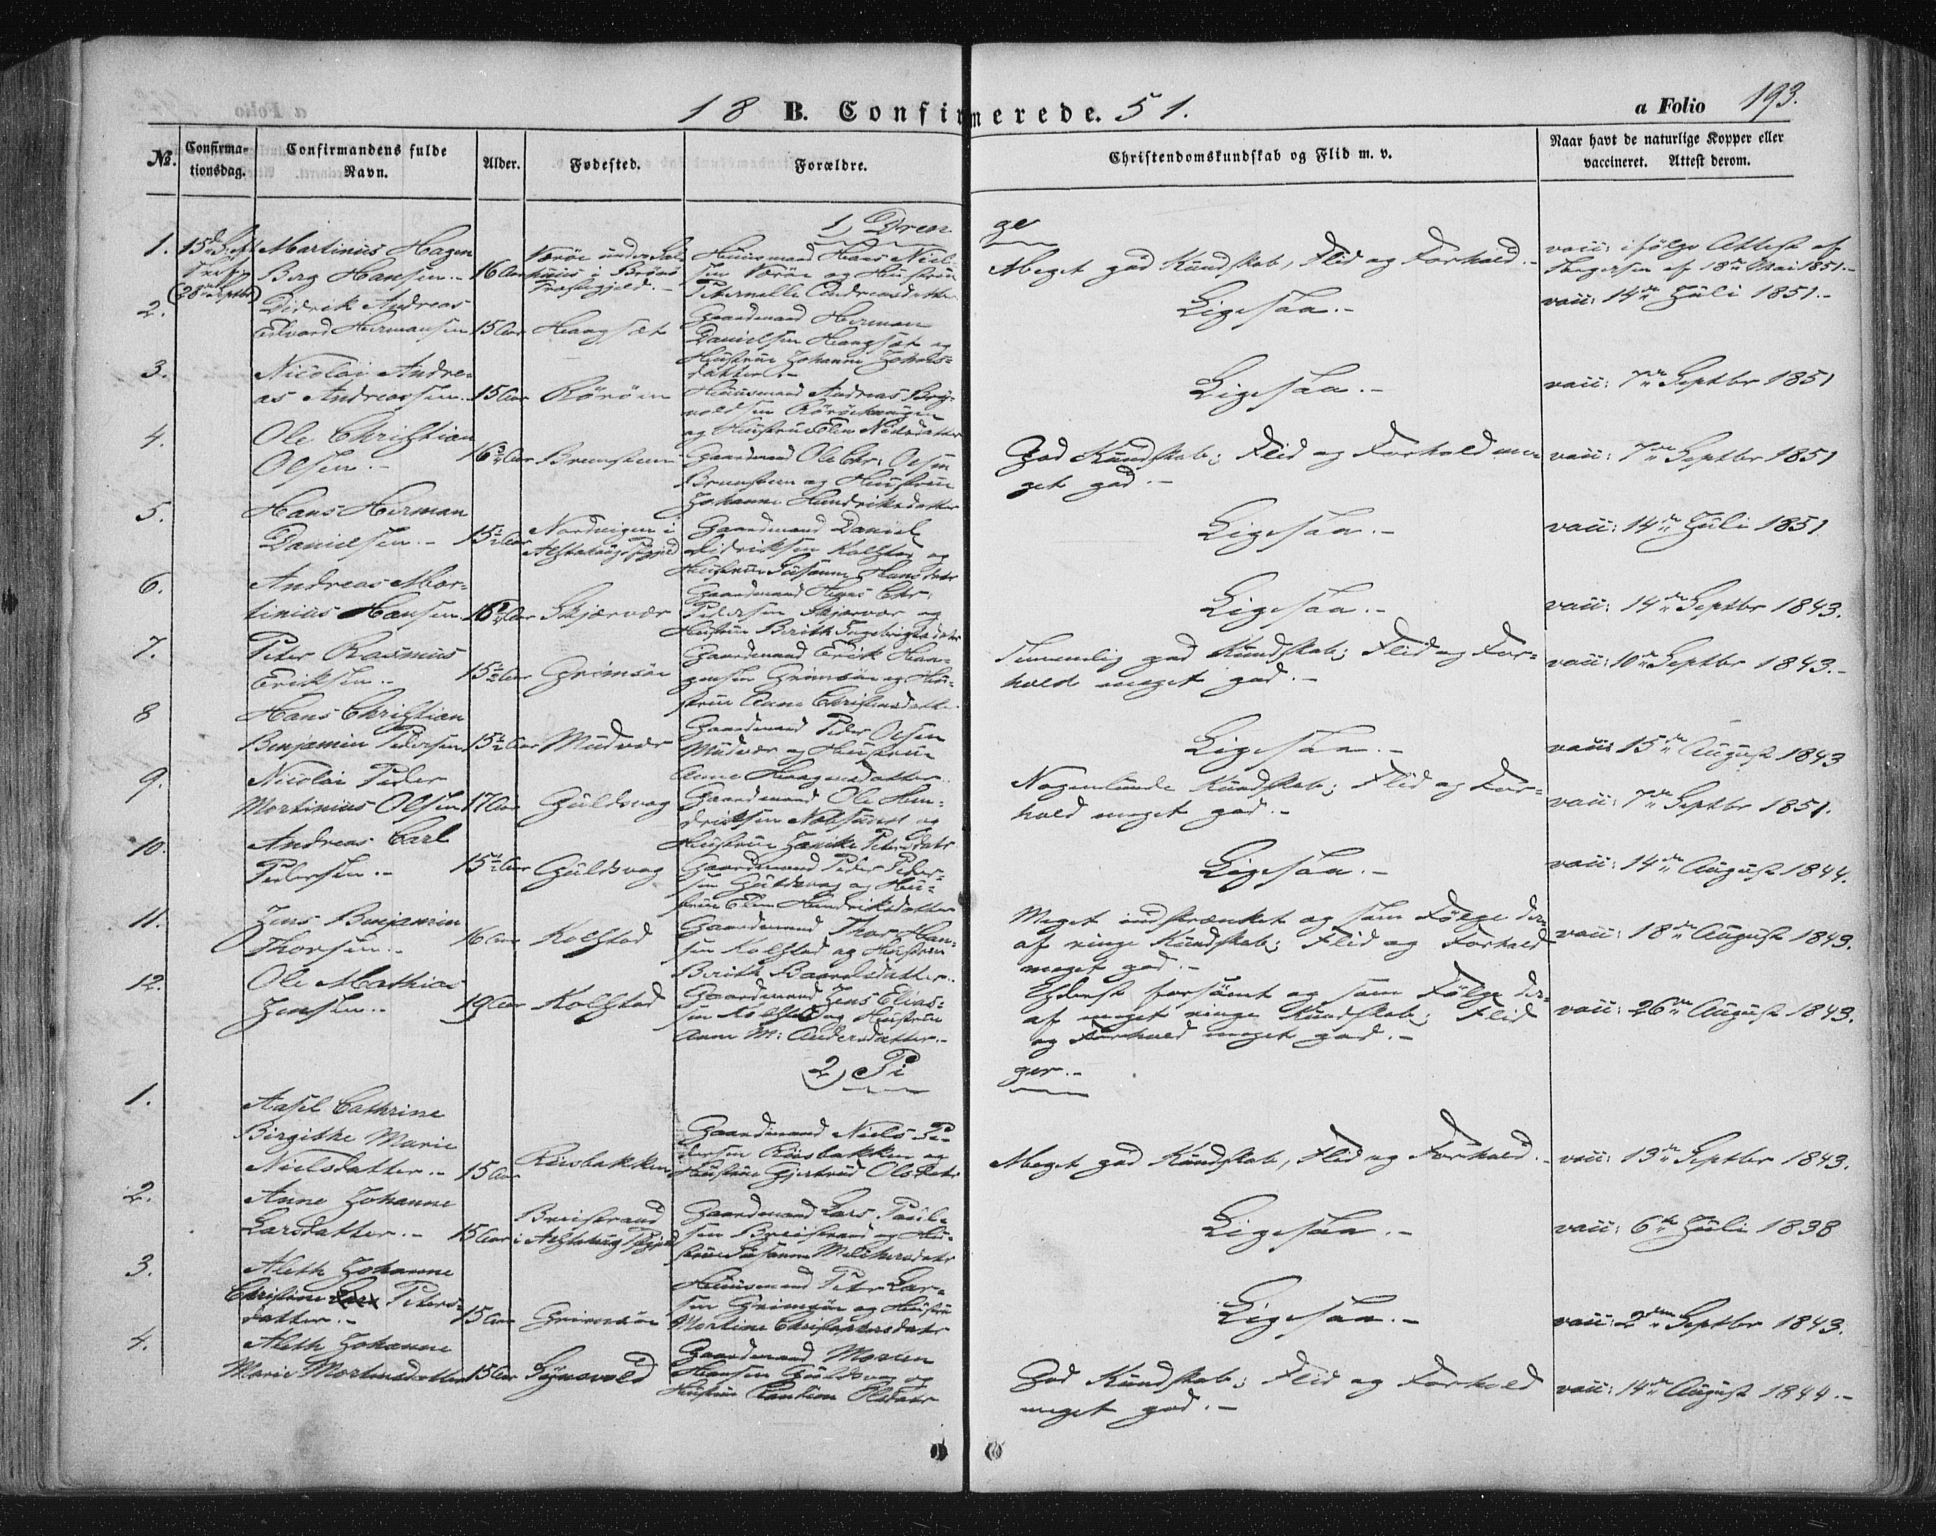 18 B. Confirmerede. 51.
a Folio 193.
No. Confirmationsdag. Confirmandens fulde Navn. Alder. Fødested. Forældre. Christendomskundskab og Flid m. v. Naar havt de naturlige Kopper eller vaccineret. Attest derom.
1) Dren
ge
1. 15de Sept
Martinus Hagen
Berg Hansen.- 16 Aar
Huusmand Hans Niel-
sen Værøe og Hustrue
Meget god Kundskab, Flid og Forhold.-
vacc: ifølge Attest af
af 18de Mai 1851.-
(28de Septbr)
2. Didrik Andreas
Edvard Hermansen 15 Aar
Gaardmand Herman
Danielsen og
Hustrue Johanne
datter.-
Ligesaa.-
vacc: 14de Juli 1851.-
3. Nicolai Andre-
as Andreassen. 15 Aar Rørøen
Huusmand Andreas Bry-
noldsen
og Hustrue Elen Nielsdatter
Ligesaa.-
vacc: 7de Septbr 1851
4. Ole Christian
Olsen.-
Gaardmand Ole Chr: Olsen
og Hustrue
Johanne Hendriksdatter
God Kundskab; Flid og Forhold me-
get god.-
vacc: 7de Septbr 1851
5. Hans Herman
Danielsen.- 15½ Aar
Nordvigen i
Alstahaug Pgjeld
Gaardmand Daniel
Didriksen Kolstad og
Hustrue Susanne Hansdatr
Ligesaa.-
vacc: 14de Juli 1851
6. Andreas Mor-
tinius Hansen Skjærvær
Gaardmand Hans Chr:
Pedersen Skjærvær og
Hustrue Brith Ingebrigtsdatr
Ligesaa.-
vacc: 14de Septbr 1843.
7. Peter Rasmus
Eriksen.- 15½ Aar Grimsøe
Gaardmand Erik Haa-
gensen Grimsøe og Hu-
strue Anne Christensdatter.
Temmelig god Kundskab; Flid og For-
hold meget god.-
vacc: 10de Septbr 1843.-
8 Hans Christian
Benjamin Pedersen 15½ Aar Mudvær
Gaardmand Peder Olsen
Mudvær og Hustrue
Anne Haagensdatter.
Ligesaa.-
vacc: 15de August 1843
9. Nicolai Peder
Mortinius Olsen 17 Aar Guldsvag
Gaardmand Ole Hen-
driksen og
Hustrue Janike Petersdatr
Nogenlunde Kundskab; Flid og For-
hold meget god.-
vacc: 7de Septbr 1851.
10. Andreas Carl
Pedersen.- 15½ Aar Guldsvag
Gaardmand Peder Peder-
sen Guldsvag og Hu-
strue Elen Hendriksdatter
Ligesaa.-
vacc: 14de August 1844.
11. Jens Benjamin
Thorsen.- 16 Aar Kolstad
Gaardmand Thor Han-
sen Kolstad og Hustrue
Berith Baardsdatter.
Meget indskrænket og som Følge der-
af ringe Kundskab; Flid og Forhold
meget god.-
vacc: 18de August 1843.
12. Ole Mathias
Jensen.- 19 Aar Kolstad
Gaardmand Jens Elias-
sen Kolstad og Hustrue
Anne M: Andersdatter.-
Yderst forsømt og som Følge der-
af meget ringe Kundskab; Flid
og Forhold meget god.-
vacc: 26de August 1843.
2) Pi
ger.-
1. Aasel Cathrine
Birgithe Marie
Nielsdatter.- 15 Aar Riisbakken
Gaardmand Niels Pe-
dersen Riisbakken og
Hustrue Gjertrud Olsdatr
Meget god Kundskab, Flid og Forhold.-
vacc: 13de Septbr 1843.
2. Anne Johanne
Larsdatter.- 15 Aar
Breistrand
i Alstahaug Pgjeld
Gaardmand Lars Paul-
sen Breistrand og Hu-
strue Susanne Melchersdatr
Ligesaa.-
vacc: 6te Juli 1838
3. Aleth Johanne
Christine Peters-
datter.- 15 Aar Grimsøe
Huusmand Peter Lar-
sen Grimsøe og Hustrue
Mortine Christophersdatr
Ligesaa.-
vacc: 2den Septbr 1843.
4. Aleth Johanne
Marie Mortensdatter 15 Aar
Gaardmand Morten
Hansen Guldsvag og
Hustrue Olsdatr
God Kundskab; Flid og Forhold
meget god.-
vacc: 14de August 1844.-